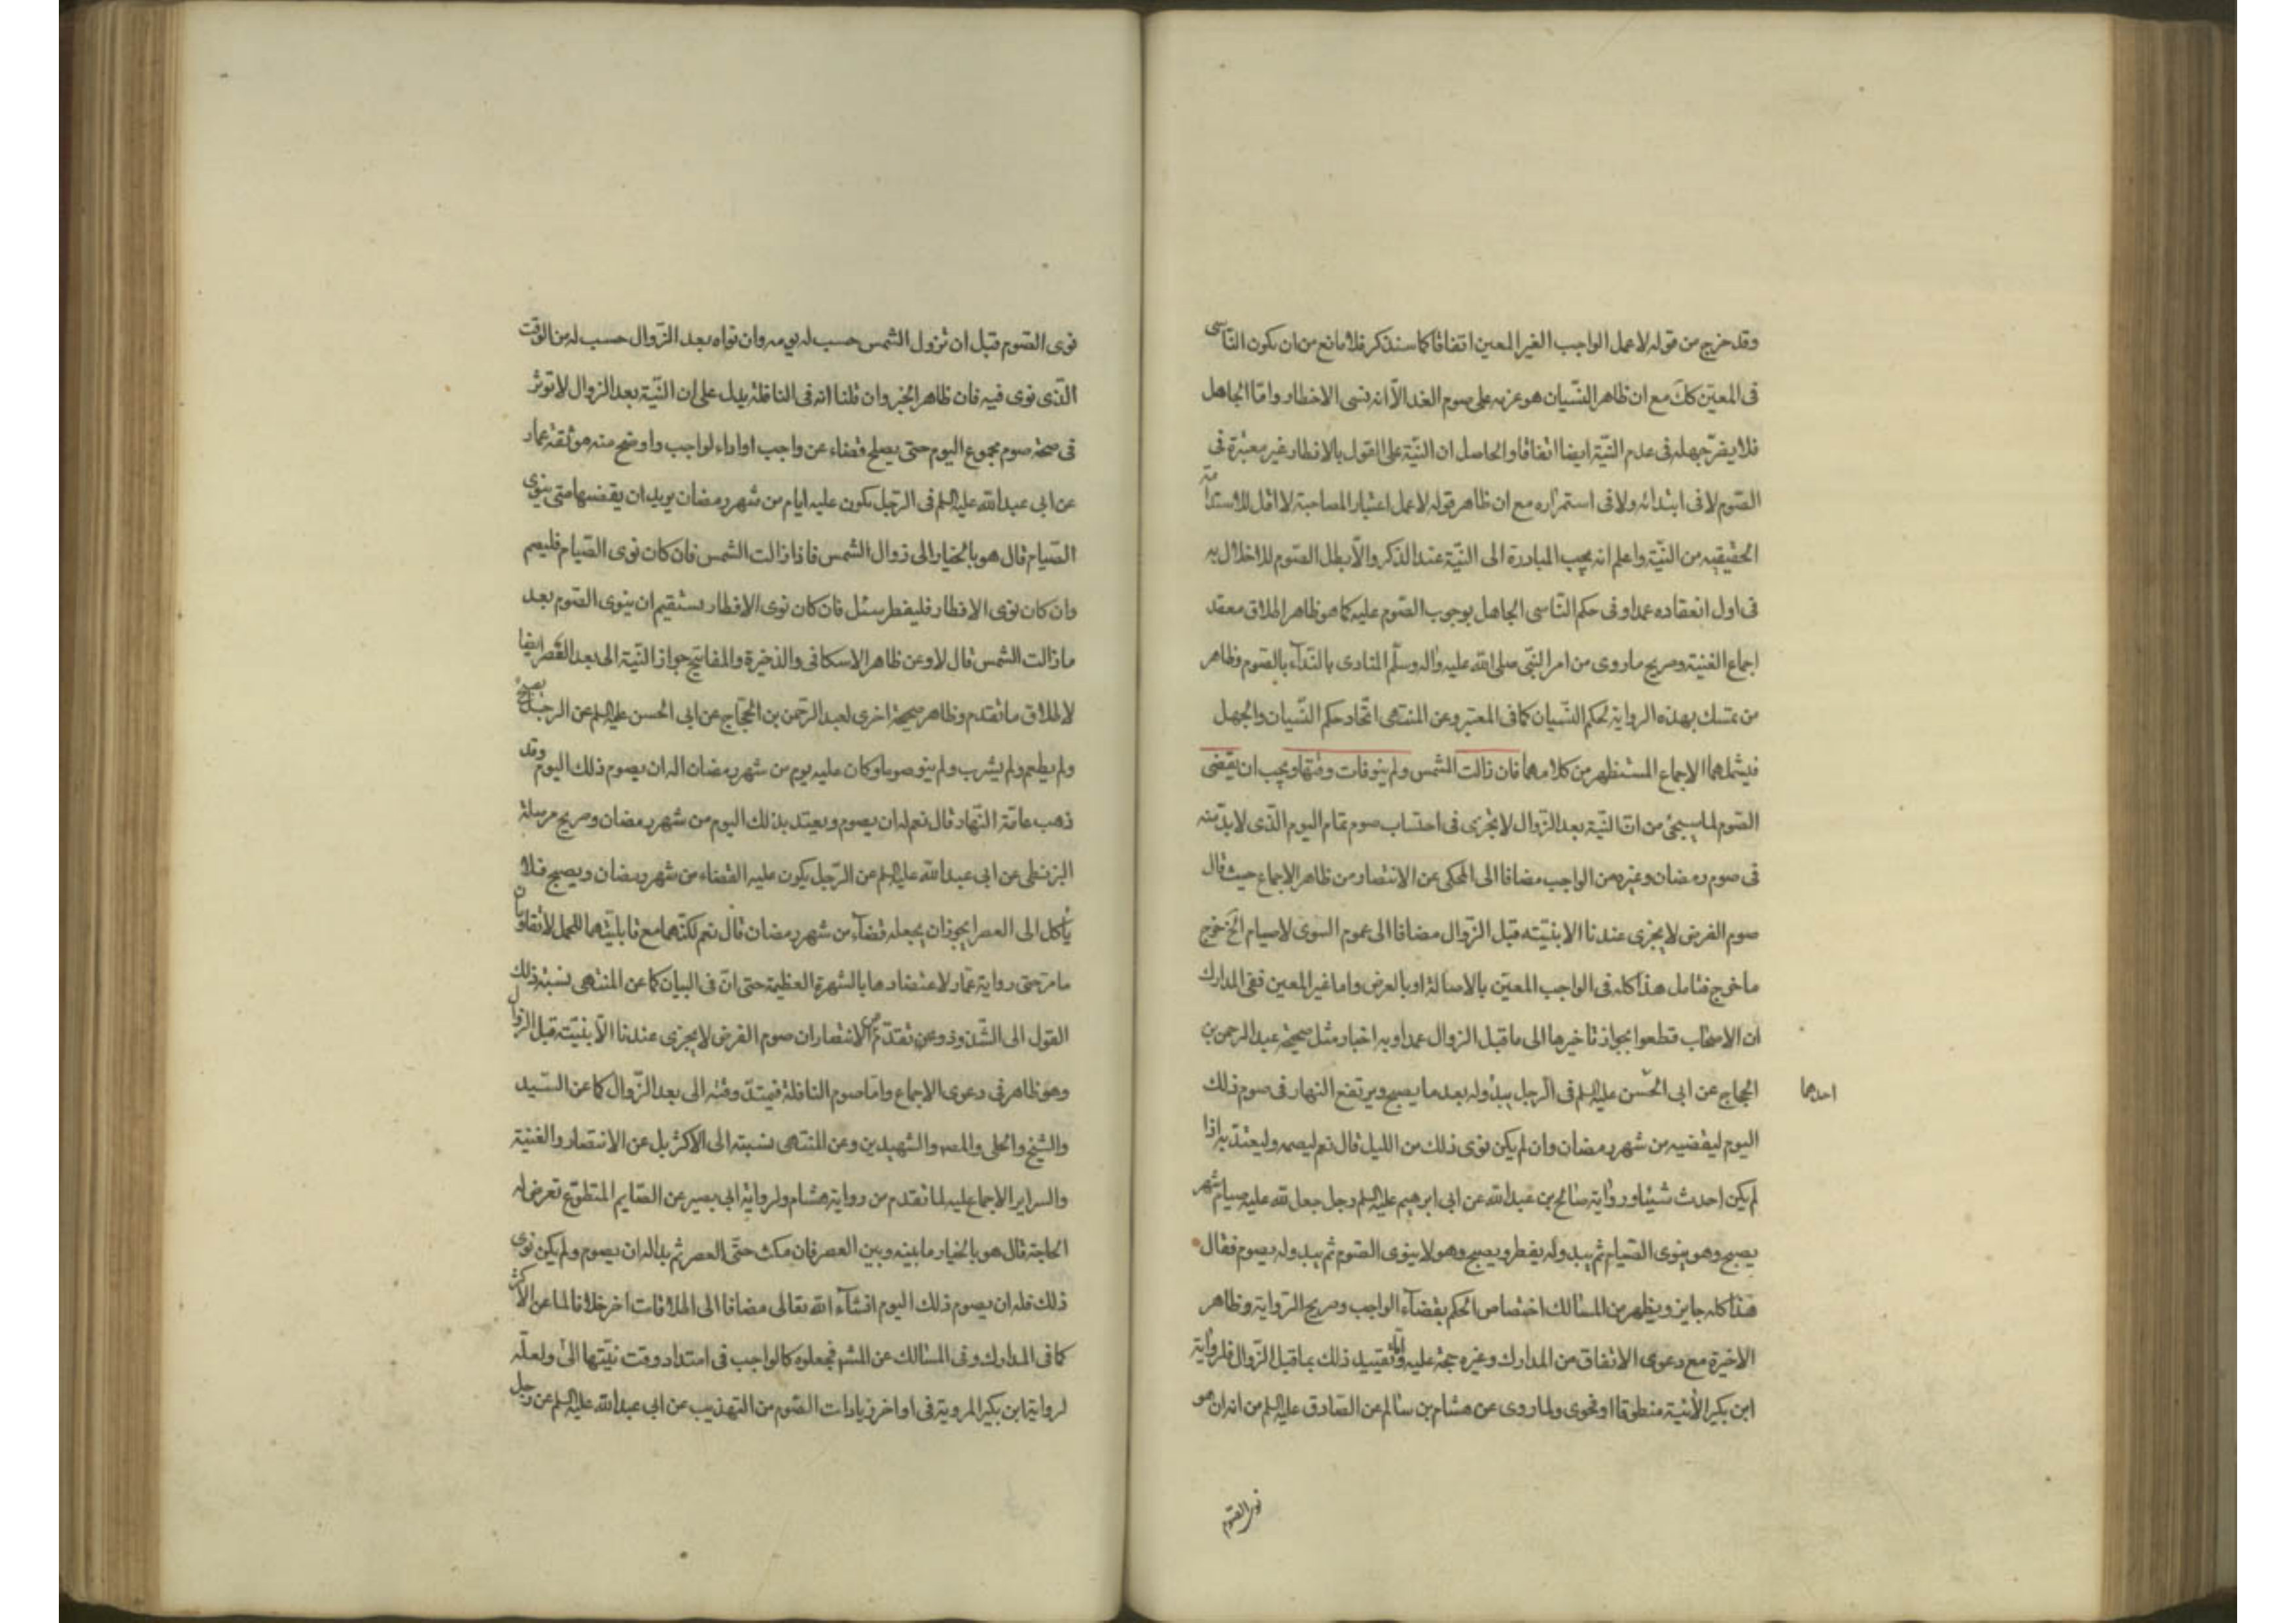 وقد خرج من قوله لا عمل الواجب الغير المعين اتفاقا كما سنذكر فلا مانع من ان يكون الناسى
فى المعيّن كك مع ان ظاهر النّسيان هو عزمه على صوم الغد الّا انه نسى الاخطار وامّا الجاهل
فلا يضرّ جهله فى عدم النّية ايضا اتفاقا والحاصل ان النّية على القول بالاخطار غير معتبرة فى
الصّوم لا فى ابتدائه ولا فى استمراره مع ان ظاهر قوله لا عمل اعتبار المصاحبة لا اقل للاستدامة
الحقيقيه من النّية واعلم انه يجب المبادرة الى النّية عند الذكر والّا بطل الصّوم للاخلال به
فى اول انعقاده عمدا وفى حكم النّاسى الجاهل بوجوب الصّوم عليه كما هو ظاهر اطلاق معقد
اجماع الغنية وصريح ما روى من امر النّبى صلى الله عليه واله وسلّم المنادى بالنّدآء بالصّوم وظاهر
من تمسك بهذه الرواية لحكم النّسيان كما فى المعتبر وعن المنتهى اتّحاد حكم النّسيان والجهل
فيشملهما الاجماع المستظهر من كلامهما فان زالت الشمس ولم ينو فات وقتها ويجب ان يقضى
الصّوم لما سيجئ من انّ النّية بعد الزّوال لا تجزى فى احتساب صوم تمام اليوم الّذى لا بدّ منه
فى صوم رمضان وغيره من الواجب مضافا الى المحكى عن الانتصار من ظاهر الاجماع حيث قال
صوم الفرض لا يجزى عندنا الا بنيّته قبل الزّوال مضافا الى عموم النبوى لا صيام الخ خرج
ما خرج فتامل هذا كله فى الواجب المعيّن بالاصالة او بالعرض واما غير المعين ففى المدارك
ان الاصحاب قطعوا بجواز تاخيرها الى ما قبل الزوال عمدا وبه اخبار مثل صحيحة عبد الرحمن بن
الحجاج عن ابى الحسن عليه السلم فى الرجل يبدو له بعد ما يصبح ويرتفع النهار فى صوم ذلك
احدهما
اليوم ليقضيه من شهر رمضان وان لم يكن نوى ذلك من الليل قال نعم ليصمه وليعتدّ به اذا
لم يكن احدث شيئا ورواية صالح بن عبد الله عن ابى ابرهيم عليه السلم رجل جعل لله عليه صيام شهر
يصبح وهو ينوى الصّيام ثم يبدو له يفطر ويصبح وهو لا ينوى الصّوم ثم يبدو له يصوم فقال
هذا كله جايز ويظهر من المسالك اختصاص الحكم بقضآء الواجب وصريح الرّواية وظاهر
الاخيرة مع دعوى الاتفاق من المدارك وغيره حجة عليه وامّا تقييد ذلك بما قبل الزّوال فلرواية
ابن بكير الأتية منطوقا او فحوى ولما روى عن هشام بن سالم عن الصّادق عليه السلم من انه ان هو
نوى الصّوم
نوى الصّوم قبل ان تزول الشمس حسب له يومه وان نواه بعد الزّوال حسب له من الوقت
الّذى نوى فيه فان ظاهر الخبر وان قلنا انه فى النافلة يدل على ان النّية بعد الزوال لا توثر
فى صحة صوم مجموع اليوم حتى يصلح قضاء عن واجب او اداء لواجب واوضح منه موثقة عمار
عن ابى عبد الله عليه السلم فى الرّجل يكون عليه ايام من شهر رمضان يريد ان يقضيها متى ينوى
الصّيام قال هو بالخيار الى زوال الشمس فاذا زالت الشمس فان كان نوى الصّيام فليصم
وان كان نوى الافطار فليفطر سئل فان كان نوى الافطار يستقيم ان ينوى الصّوم بعد
ما زالت الشمس قال لا وعن ظاهر الاسكافى والذخيرة والمفاتيح جواز النّية الى بعد العصر ايضا
لاطلاق ما تقدم وظاهر صحيحة اخرى لعبد الرّحمن بن الحجّاج عن ابى الحسن عليه السلم عن الرجل يصبح
ولم يطعم ولم يشرب ولم ينو صوما وكان عليه يوم من شهر رمضان اله ان يصوم ذلك اليوم وقد
ذهب عامّة النّهار قال نعم له ان يصوم ويعتد بذلك اليوم من شهر رمضان وصريح مرسلة
البزنطى عن ابى عبد الله عليه السلم عن الرّجل يكون عليه القضاء من شهر رمضان ويصبح فلا
يأكل الى العصر ايجوز ان يجعله قضآء من شهر رمضان قال نعم لكنّهما مع قابليّتهما للحمل لا تقاومان
ما مرّ حتى رواية عمّار لاعتضادها بالشهرة العظيمة حتى انّ فى البيان كما عن المنتهى نسبة ذلك
القول الى الشّذوذ وعن تقدّم من الانتصار ان صوم الفرض لا يجزى عندنا الّا بنيّته قبل الزوال
وهو ظاهر فى دعوى الاجماع وامّا صوم النافلة فيمتدّ وقته الى بعد الزّوال كما عن السّيد
والشيخ والحلى والمص والشهيدين وعن المنتهى نسبته الى الاكثر بل عن الانتصار والغنية
والسراير الاجماع عليه لما تقدم من رواية هشام ولرواية ابى بصير عن الصّايم المتطوّع تعرض له
الحاجة قال هو بالخيار ما بينه وبين العصر فان مكث حتّى العصر ثم بدا له ان يصوم ولم يكن نوى
ذلك فله ان يصوم ذلك اليوم انشآء الله تعالى مضافا الى اطلاقات اخر خلافا لما عن الاكثر
كما فى المدارك وفى المسالك عن المشهور فجعلوه كالواجب فى امتداد وقت نيّتها الى ولعلّه
لرواية ابن بكير المروية فى اواخر زيادات الصّوم من التهذيب عن ابى عبد الله عليه السلم عن رجل